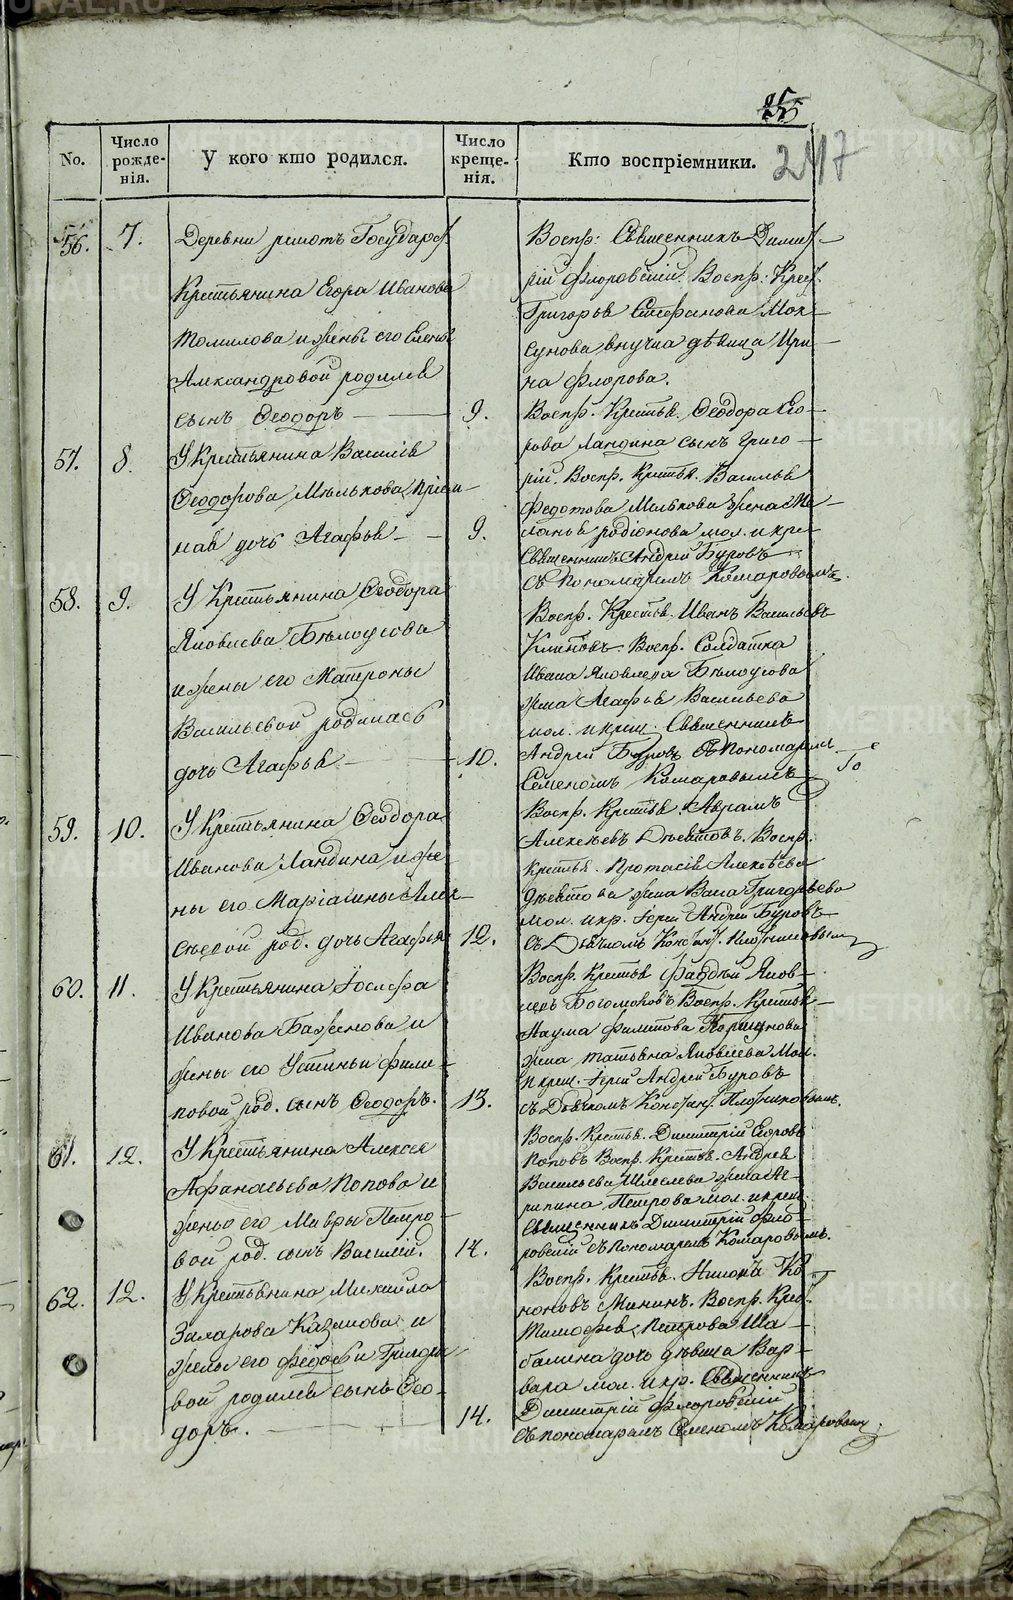 85
217
No.
Число рожде-нія.
У кого кто родился.
Число креще-нія.
Кто воспріемники.
56. 7. Деревни Государ.
Крестьянина Егора Иванова
Томилова и жены его Елены
Александровой родился
сынъ Ѳеодоръ — 9.
Воспр: Священникъ Димит-
рій Флоровскій. Воспр: Крест.
Григорья Стефанова Мок-
сунова внучка дѣвица Ири-
на Флорова.
57. 8. У Крестьянина Василія
Ѳеодорова Мѣлькова пріем-
ная дочь Агафья — 9.
Воспр. Крестья. Ѳеодора Его-
рова Ландина сынъ Григо-
рій. Воспр. Крестья. Василья
Федотова Милькова жена Ме-
ланья Родіонова мол. и кре.
Священникъ Андрей Буровъ
съ Пономаремъ Комаровымъ.
58. 9. У Крестьянина Ѳеодора
Яковлева Бѣлоусова
и жены его Матроны
Васильевой родилась
дочь Агафья — 10.
Воспр. Крестья. Иванъ Васильевъ
Воспр. Солдатка
Ивана Яковлева Бѣлоусова
жена Агафья Васильева
мол. и крещ. Священникъ
Андрей Буровъ съ Пономарем
Семеномъ Комаровымъ
59. 10. У Крестьянина Ѳеодора
Иванова Ландина и же-
ны его Маріамны Алек-
сѣевой род. дочь Агафья 12.
Воспр. Крестья. Аврамъ
Алексѣевъ Воспр.
Крестья. Протасія Алексѣева
жена Васа Григорьева
мол. и кр. Іерей Андрей Буровъ
съ Дьячкомъ Констан. Плотниковым
60. 11. У Крестьянина Іосифа
Иванова Баженова и
жены его Устиньи Фили-
повой род. сынъ Ѳеодоръ. 13.
Воспр. Крестья Фаддѣй Яков-
левъ Богомоловъ Воспр. Крестья
Наума Филипова Коршунова
жена Татьяна Яковлева Мол.
и крещ. Іерей Андрей Буровъ
съ Дьячкомъ Констан. Плотниковымъ.
61. 12. У Крестьянина Алексѣя
Афанасьева Попова и
жены его Мавры Петро-
вой род. сынъ Василій. 14.
Воспр. Крестья. Димитрій Егоровъ
Поповъ Воспр. Крестья. Андрея
Васильева Шмелева жена Аг-
рипина Петрова мол. и крещ.
Священникъ Димитрій Фло-
ровскій съ пономаремъ Комаровымъ.
62. 12. У Крестьянина Михайла
Захарова Казанцова и
жены его Федосьи Григорье-
вой родился сынъ Ѳео-
доръ. — 14.
Воспр. Крестья. Никола Ко-
ноновъ Мининъ. Воспр. Крес.
Тимофея Петрова Ша-
балина дочь дѣвица Вар-
вара мол. и кр. Священникъ
Димитрій Флоровскій
съ пономаремъ Семеномъ Комаровым